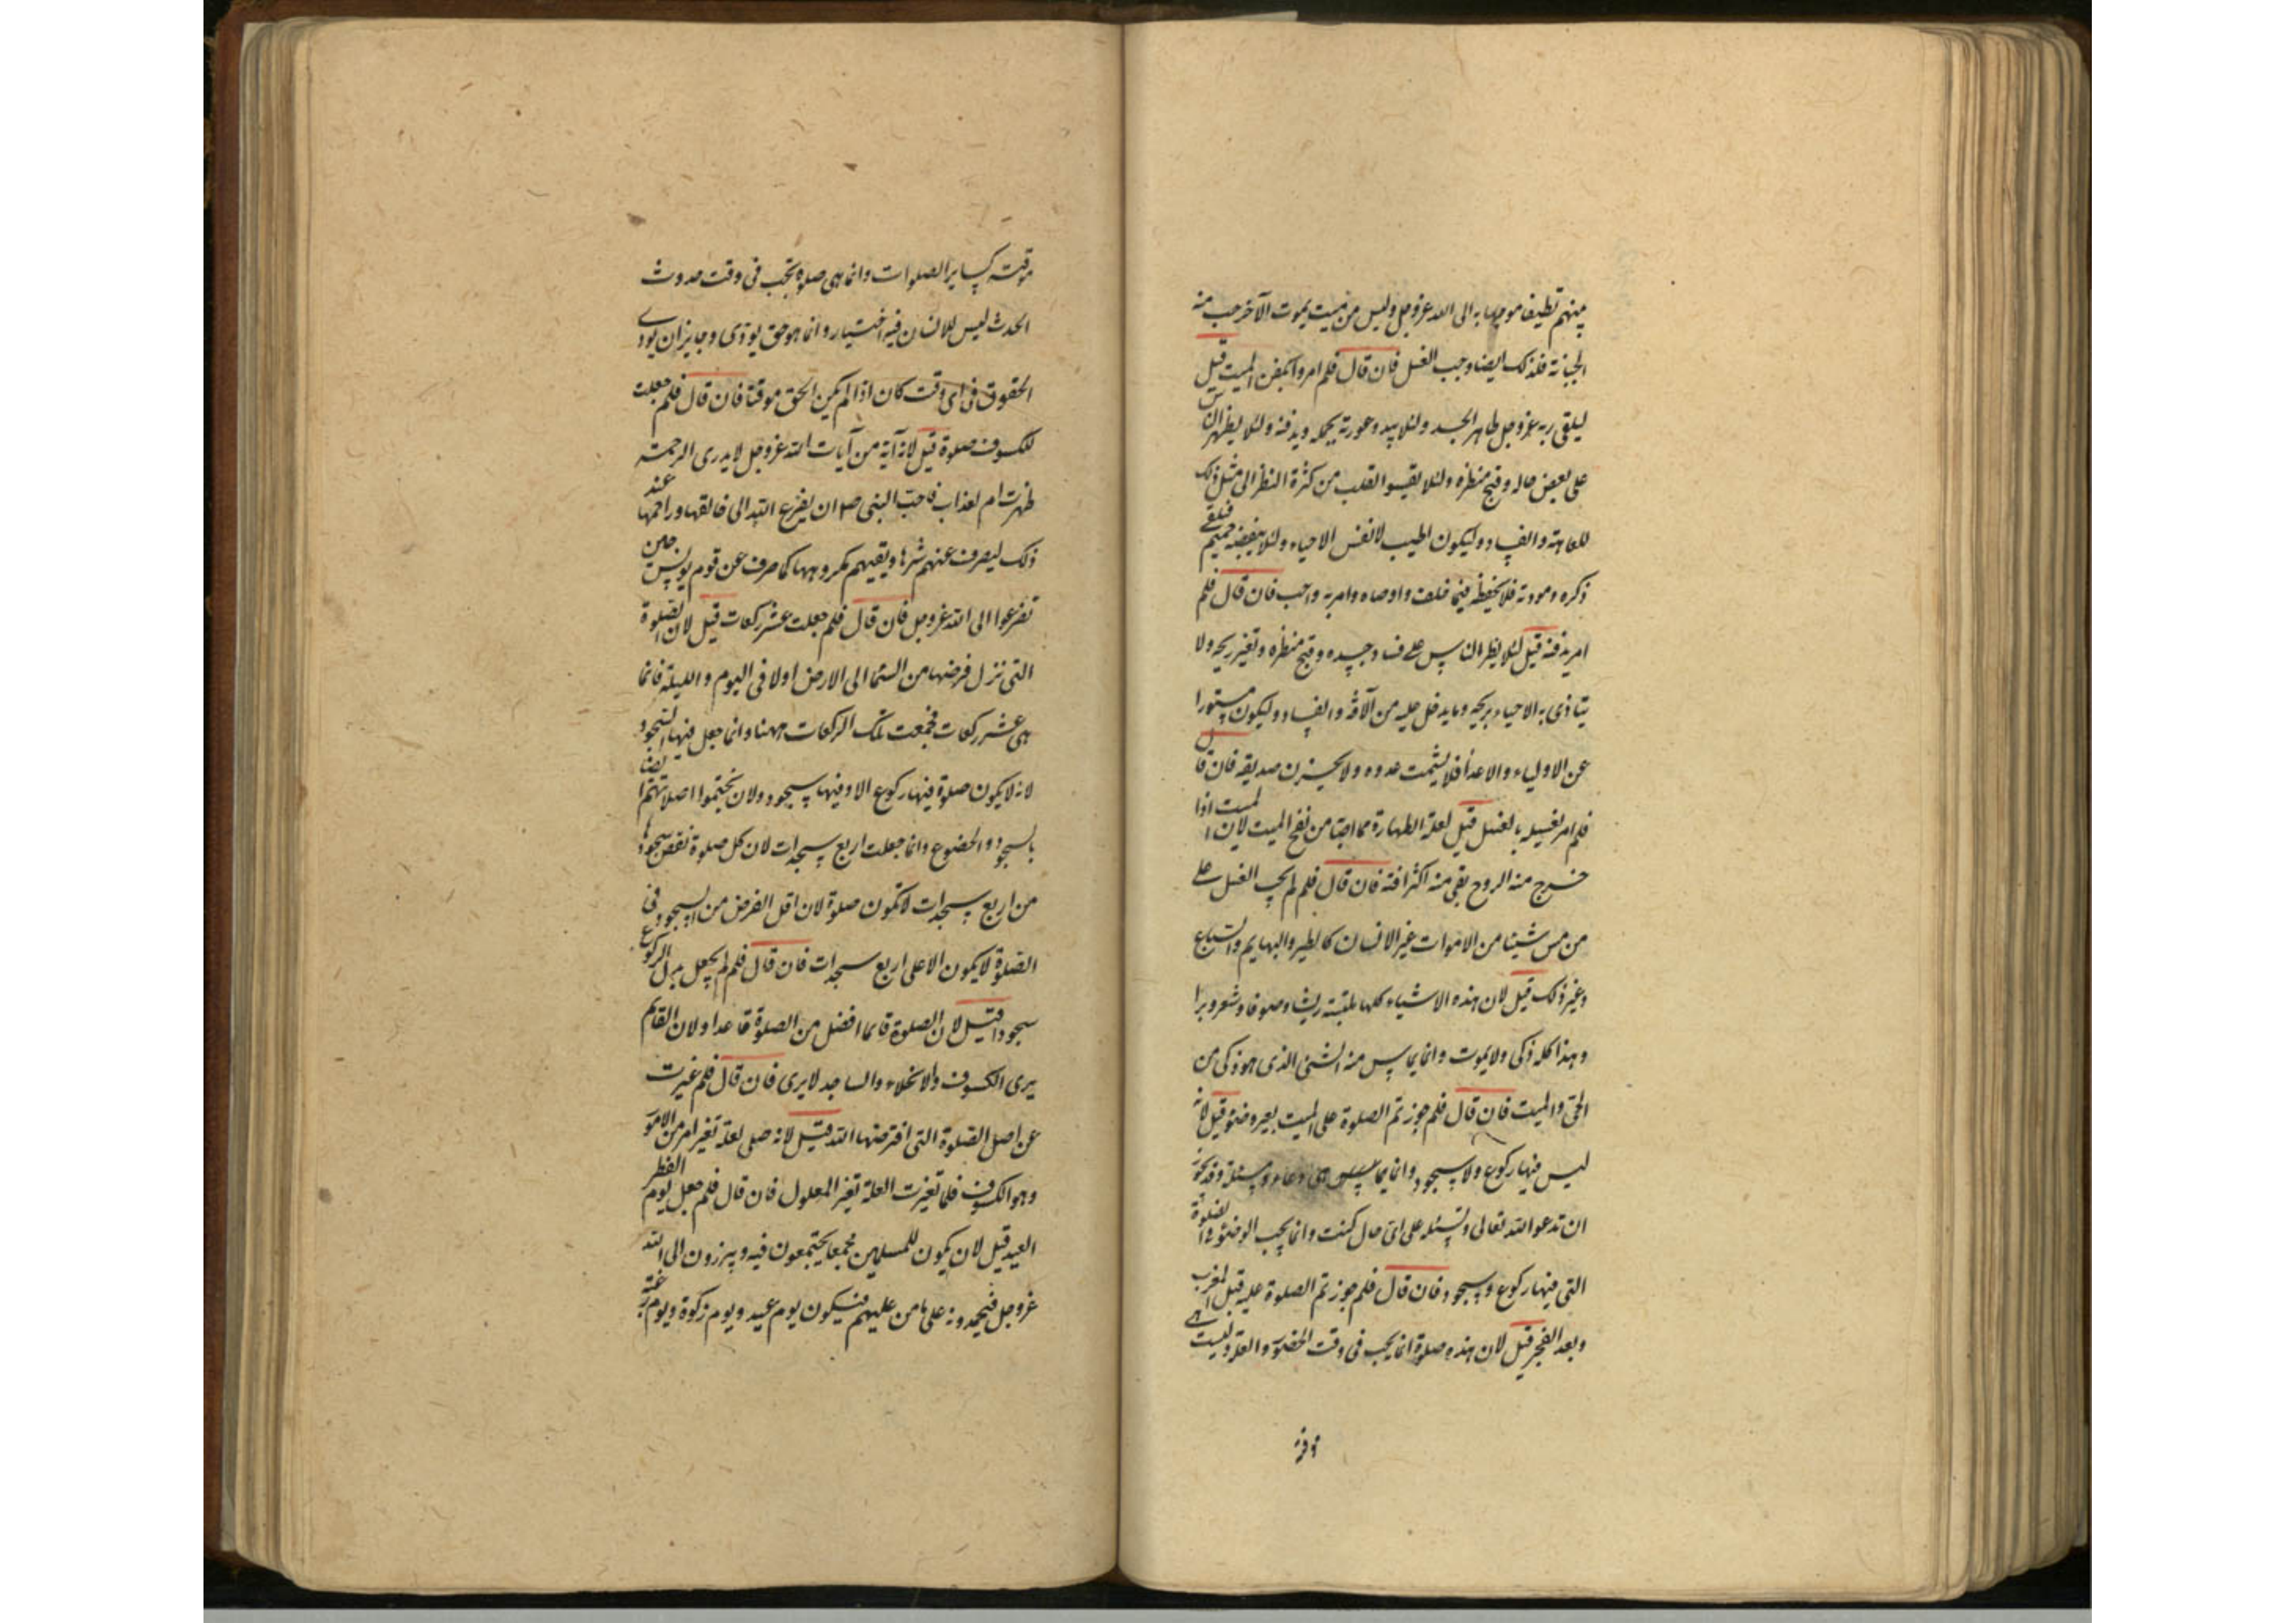 منهم نظيفا موجها به الى الله عزوجل وليس من ميت يموت الا خرجت منه
الجنابة فلذلك ايضا وجب الغسل فان قال فلم امروا بكفن الميت قيل
ليلقى ربه عزوجل طاهر الجسد ولئلا يبدو عورته لمن يحمله ويدفنه ولئلا يظهر الناس
على بعض حاله وقبح منظره ولئلا يقسوا القلب من كثرة النظر الى مثل ذلك
للعاهة والفساد وليكون اطيب لانفس الاحياء ولئلا يبغضه حميم فيلقى
ذكره ومودته فلا يحفظه فيما خلف واوصاه وامر به واحب فان قال فلم
امر بدفنه قيل لئلا يظهر الناس على فساد جسده وقبح منظره وتغير ريحه ولا
يتاذى به الاحياء بريحه وما يدخل عليه من الآفة والفساد وليكون مستورا
عن الاولياء والاعداء فلا يشمت عدوه ولا يحزن صديقه فان قال
فلم امر من يغسله بالغسل قيل لعلة الطهارة مما اصابه من نضح الميت لان الميت اذا
خرج منه الروح بقى منه اكثر افته فان قال فلم لم يجب الغسل على
من مس شيئا من الاموات غير الانسان كالطير والبهايم والسباع
وغير ذلك قيل لان هذه الاشياء كلها ملبسة ريشا وصوفا وشعرا ووبرا
وهذا كله ذكى ولا يموت وانما يماس منه الشئ الذى هو ذكى من
الحى والميت فان قال فلم جوزتم الصلوة على الميت بغير وضوء قيل لانه
ليس فيها ركوع ولا سجود وانما هى دعاء ومسئلة وقد يجوز
ان تدعو الله تعالى وتسئله على اى حال كنت وانما يجب الوضوء فى الصلوة
التى فيها ركوع وسجود فان قال فلم جوزتم الصلوة عليه قبل المغرب
وبعد الفجر قيل لان هذه صلوة انما يجب فى وقت الحضور والعلة وليست هى
موقتة
موقتة كساير الصلوات وانما هى صلوة تجب فى وقت حدوث
الحدث ليس للانسان فيه اختيار وانما هو حق يؤدى وجايز ان يؤدى
الحقوق فى اى وقت كان اذا لم يكن الحق موقتا فان قال فلم جعلت
للكسوف صلوة قيل لانه آية من آيات الله عزوجل لا يدرى الرحمة
ظهرت ام لعذاب فاحب النبى ص ان يفزع امته الى خالقها وراحمها عند
ذلك ليصرف عنهم شرها ويقيهم مكروهها كما صرف عن قوم يونس حين
تضرعوا الى الله عزوجل فان قال فلم جعلت عشر ركعات قيل لان الصلوة
التى نزل فرضها من السماء الى الارض اولا فى اليوم والليلة فانما
هى عشر ركعات فجمعت تلك الركعات ههنا وانما جعل فيها السجود
لانه لا يكون صلوة فيها ركوع الا وفيها سجود ولان يختموا صلاتهم ايضا
بالسجود والخضوع وانما جعلت اربع سجدات لان كل صلوة نقص سجودها
من اربع سجدات لا تكون صلوة لان اقل الفرض من السجود فى
الصلوة لا يكون الا على اربع سجدات فان قال فلم لم يجعل بدل الركوع
سجودا قيل لان الصلوة قائما افضل من الصلوة قاعدا ولان القائم
يرى الكسوف والانجلاء والساجد لا يرى فان قال فلم غيرت
عن اصل الصلوة التى افترضها الله قيل لانه صلى لعلة تغير امر من الامور
وهو الكسوف فلما تغيرت العلة تغير المعلول فان قال فلم جعل يوم الفطر
العيد قيل لان يكون للمسلمين مجمعا يجتمعون فيه ويبرزون الى الله
عزوجل فيحمدونه على ما من عليهم فيكون يوم عيد ويوم زكوة ويوم رغبة